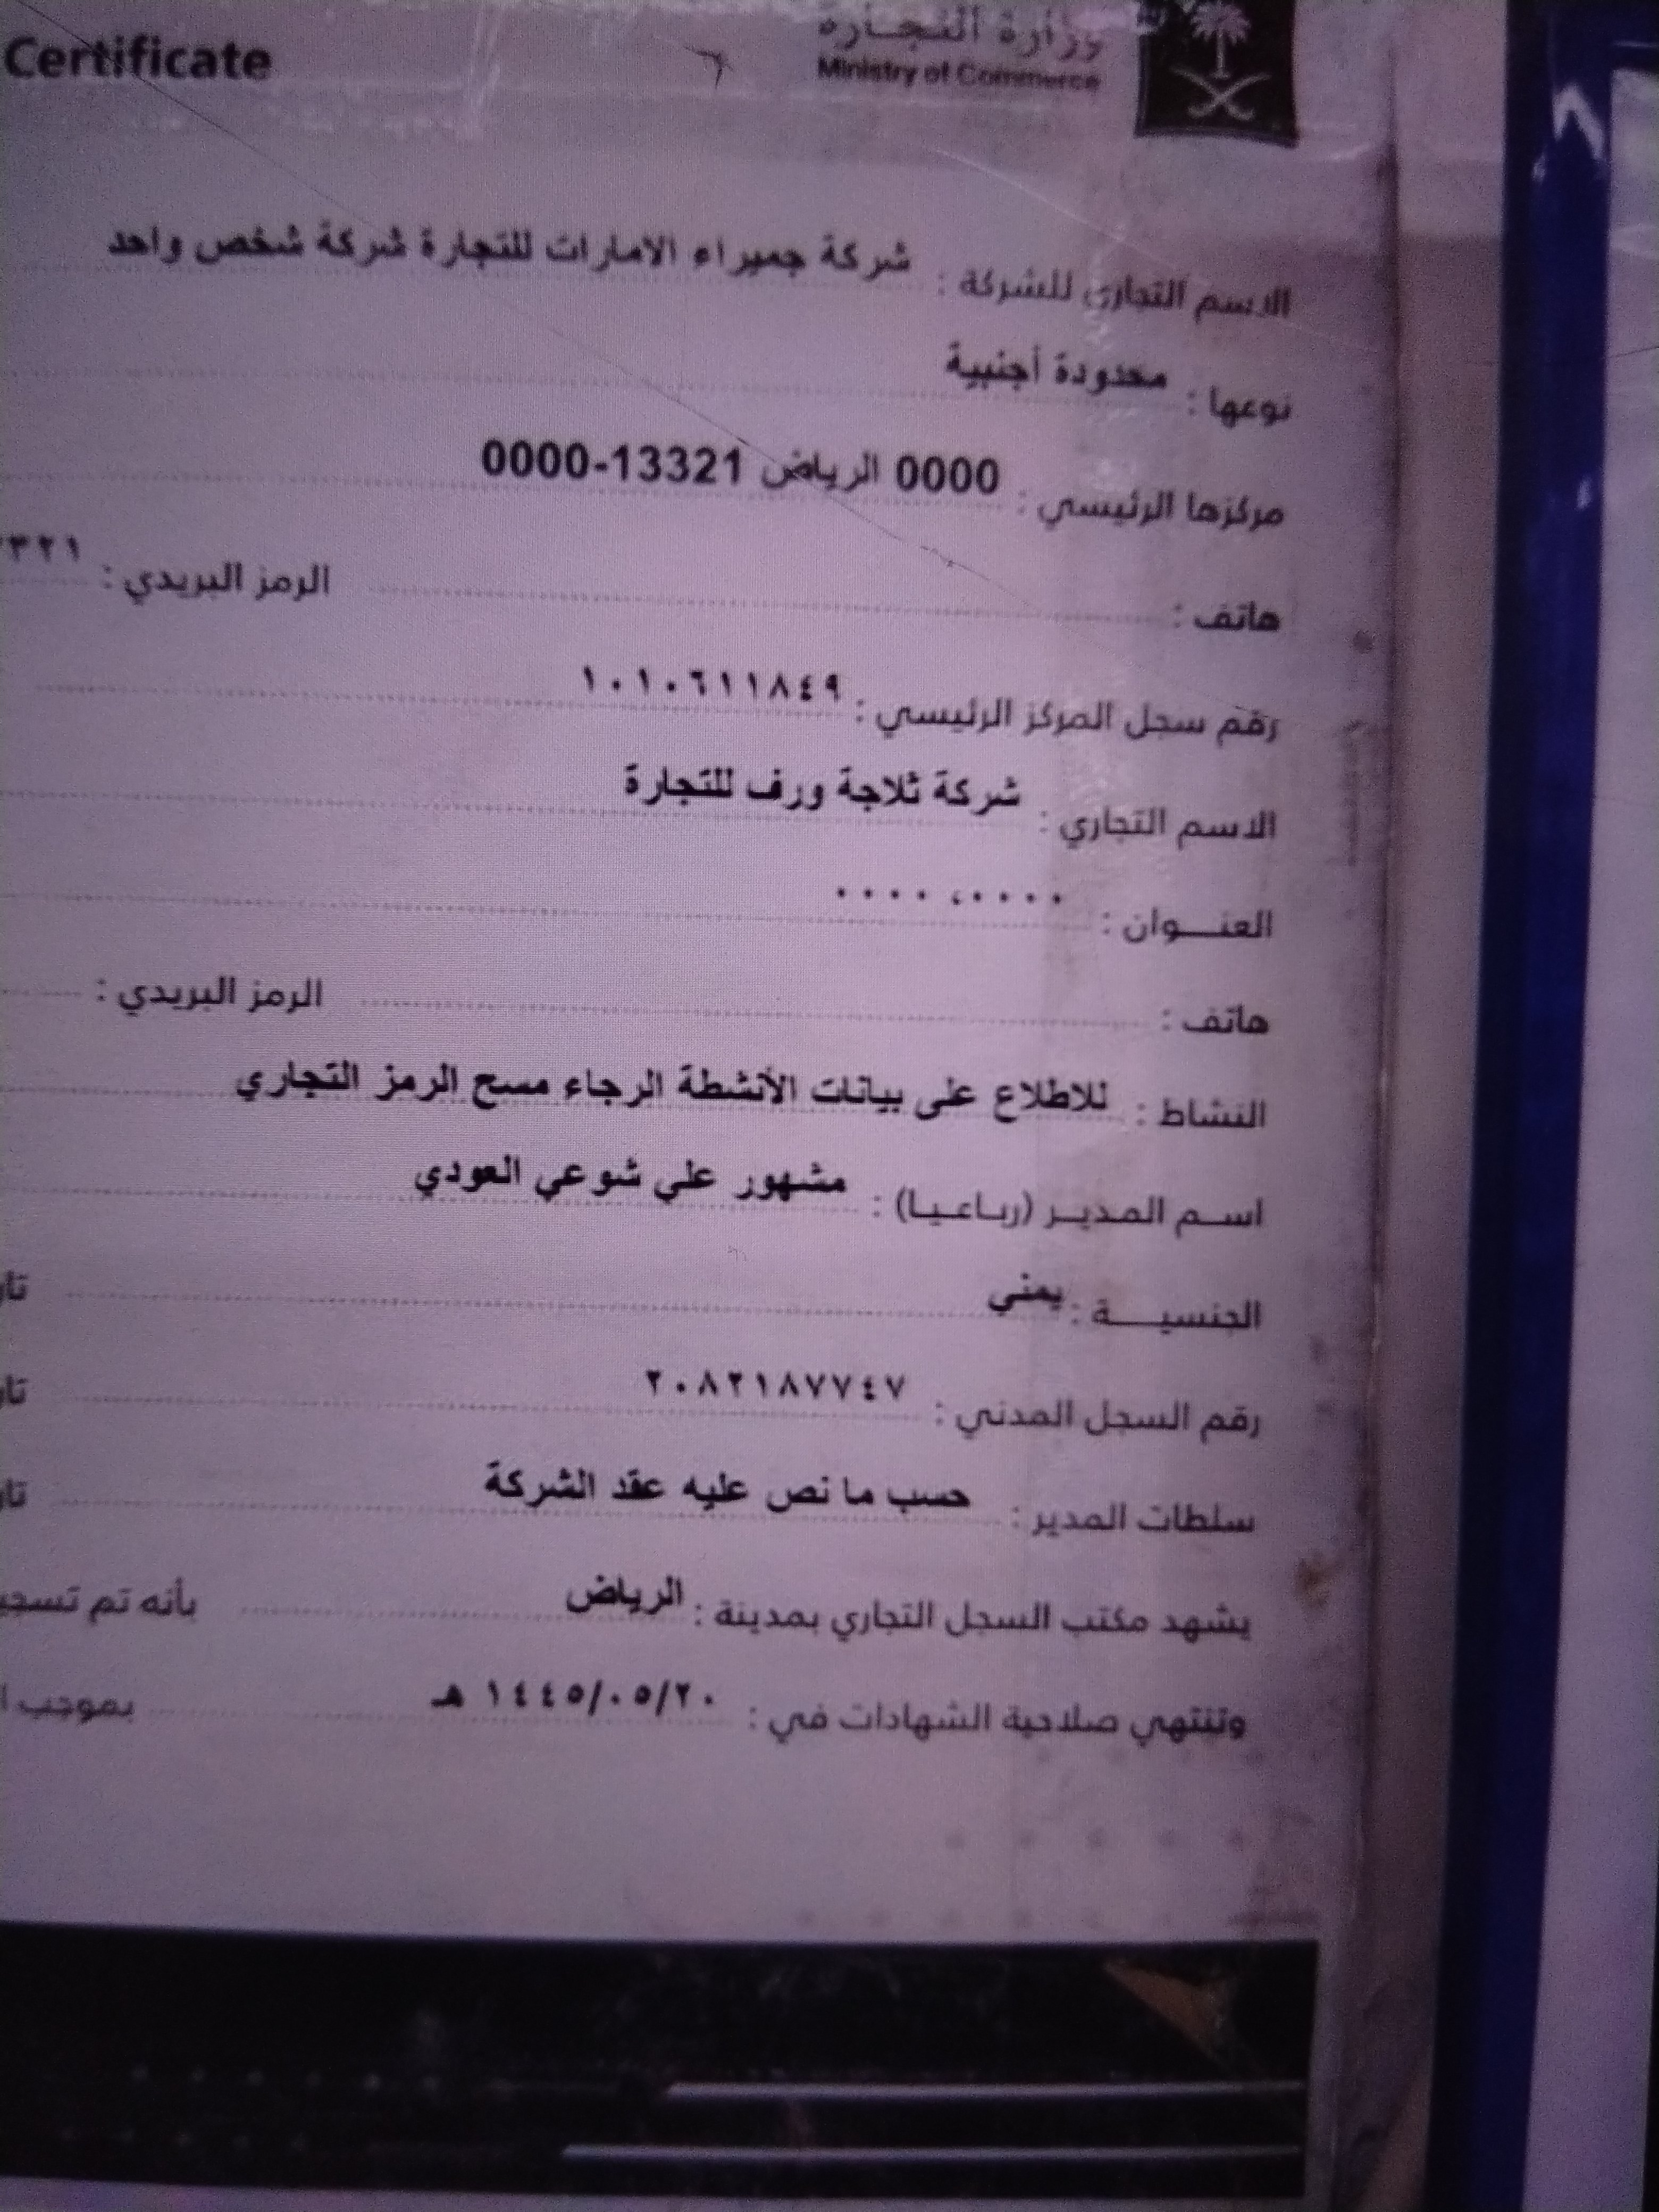 وزارة التجارة
Ministry of Commerce
Certificate
الاسم التجاري للشركة : شركة جميراء الامارات للتجارة شركة شخص واحد
نوعها : محدودة أجنبية
مركزها الرئيسي : 0000 الرياض 13321-0000
هاتف : الرمز البريدي : ٣٢١
رقم سجل المركز الرئيسي : ١٠١٠٦١١٨٤٩
الاسم التجاري : شركة ثلاجة ورف للتجارة
العنـــوان : ٠٠٠٠، ٠٠٠٠
هاتف : الرمز البريدي :
النشاط : للاطلاع على بيانات الأنشطة الرجاء مسح الرمز التجاري
اسـم المديـر (رباعيـا) : مشهور علي شوعي العودي
الجنسيـــة : يمني تا
رقم السجل المدني : ٢٠٨٢١٨٧٧٤٧ تا
سلطات المدير : حسب ما نص عليه عقد الشركة تا
يشهد مكتب السجل التجاري بمدينة : الرياض بأنه تم تسجي
وتنتهي صلاحية الشهادات في : ١٤٤٥/٠٥/٢٠ هـ بموجب ا